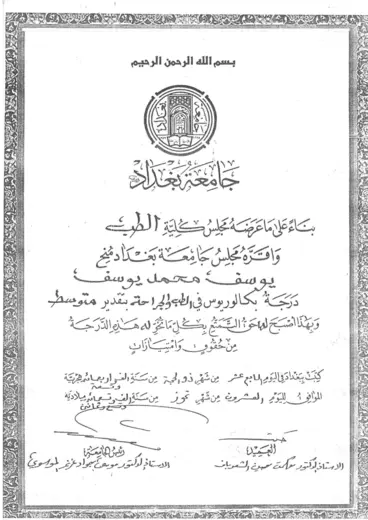 بسم الله الرحمن الرحيم
جامعة بغداد
بناء على ما عرضه مجلس كلية الطب
واقره مجلس جامعة بغداد منح
يوسف محمد يوسف
درجة بكالوريوس في الطب والجراحة بتقدير متوسط
وبهذا اصبح له حق التمتع بكل ما تخوله هذه الدرجة
من حقوق وامتيازات
كتب ببغداد في اليوم الرابع عشر من شهر ذو الحجة من سنة الف واربعمائة هجرية
الموافق لليوم العشرون من شهر تموز من سنة الف وتسعمائة ميلادية
العميد
رئيس الجامعة
الاستاذ الدكتور
الاستاذ الدكتور